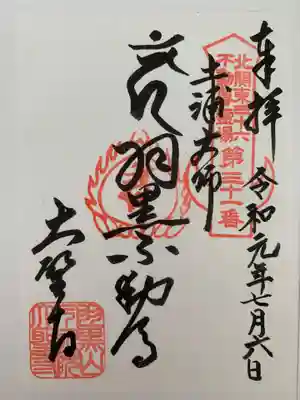 奉拝
令和元年七月六日
北関東三十六
不動尊霊場
第三十一番
土浦大師
羽黒不動尊
大聖寺